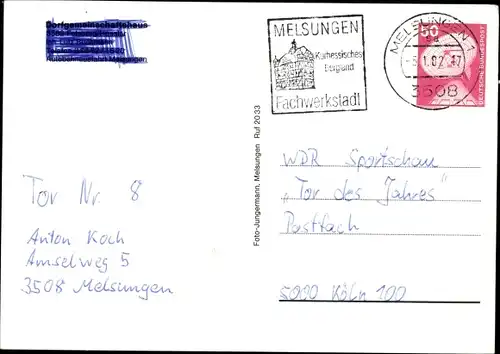 Dorfgemeinschaftshaus
MELSUNGEN
Kurhessisches
Bergland
Fachwerkstadt
MELSUNGEN 1
3508
50
DEUTSCHE BUNDESPOST
Foto-Jungermann, Melsungen Ruf 2033
Tor Nr. 8
Anton Koch
Amselweg 5
3508 Melsungen
WDR Sportschau
„Tor des Jahres"
Postfach
5000 Köln 100